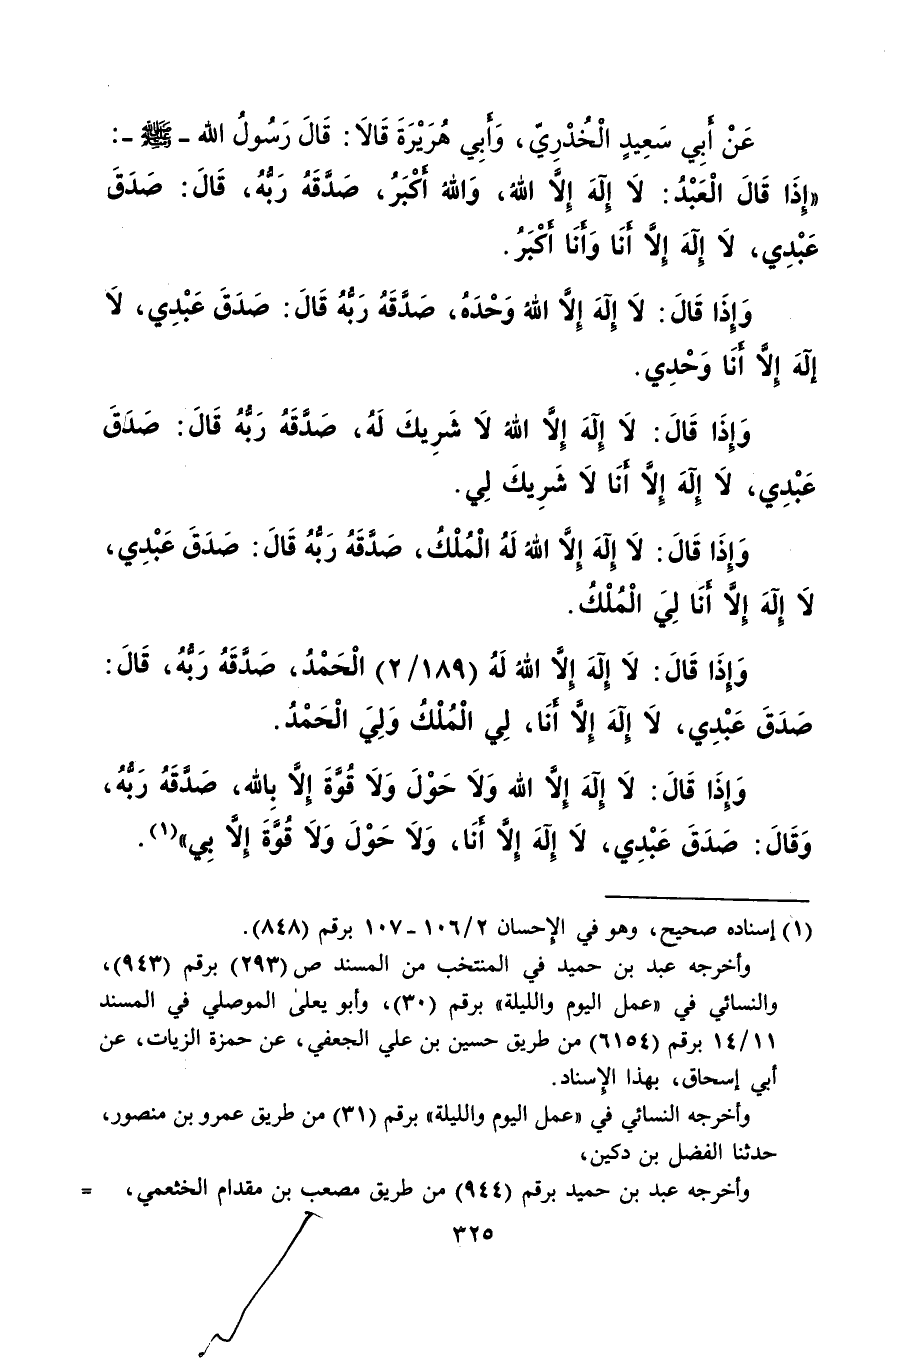 عَنْ أَبِي سَعِيدٍ الْخُدْرِيِّ، وَأَبِي هُرَيْرَةَ قَالَا: قَالَ رَسُولُ الله ـ ﷺ ـ:
«إِذَا قَالَ الْعَبْدُ: لَا إِلٰهَ إِلَّا اللهُ، وَاللهُ أَكْبَرُ، صَدَّقَهُ رَبُّهُ، قَالَ: صَدَقَ
عَبْدِي، لَا إِلٰهَ إِلَّا أَنَا وَأَنَا أَكْبَرُ.
وَإِذَا قَالَ: لَا إِلٰهَ إِلَّا اللهُ وَحْدَهُ، صَدَّقَهُ رَبُّهُ قَالَ: صَدَقَ عَبْدِي، لَا
إِلٰهَ إِلَّا أَنَا وَحْدِي.
وَإِذَا قَالَ: لَا إِلٰهَ إِلَّا اللهُ لَا شَرِيكَ لَهُ، صَدَّقَهُ رَبُّهُ قَالَ: صَدَقَ
عَبْدِي، لَا إِلٰهَ إِلَّا أَنَا لَا شَرِيكَ لِي.
وَإِذَا قَالَ: لَا إِلٰهَ إِلَّا اللهُ لَهُ الْمُلْكُ، صَدَّقَهُ رَبُّهُ قَالَ: صَدَقَ عَبْدِي،
لَا إِلٰهَ إِلَّا أَنَا لِيَ الْمُلْكُ.
وَإِذَا قَالَ: لَا إِلٰهَ إِلَّا اللهُ لَهُ (٢/١٨٩) الْحَمْدُ، صَدَّقَهُ رَبُّهُ، قَالَ:
صَدَقَ عَبْدِي، لَا إِلٰهَ إِلَّا أَنَا، لِي الْمُلْكُ وَلِيَ الْحَمْدُ.
وَإِذَا قَالَ: لَا إِلٰهَ إِلَّا الله وَلَا حَوْلَ وَلَا قُوَّةَ إِلَّا بِالله، صَدَّقَهُ رَبُّهُ،
وَقَالَ: صَدَقَ عَبْدِي، لَا إِلٰهَ إِلَّا أَنَا، وَلَا حَوْلَ وَلَا قُوَّةَ إِلَّا بِي»(١).
(١) إسناده صحيح، وهو في الإحسان ١٠٦/٢ ـ ١٠٧ برقم (٨٤٨).
وأخرجه عبد بن حميد في المنتخب من المسند ص (٢٩٣) برقم (٩٤٣)،
والنسائي في «عمل اليوم والليلة» برقم (٣٠)، وأبو يعلىٰ الموصلي في المسند
١٤/١١ برقم (٦١٥٤) من طريق حسين بن علي الجعفي، عن حمزة الزيات، عن
أبي إسحاق، بهذا الإسناد.
وأخرجه النسائي في «عمل اليوم والليلة» برقم (٣١) من طريق عمرو بن منصور،
حدثنا الفضل بن دكين،
وأخرجه عبد بن حميد برقم (٩٤٤) من طريق مصعب بن مقدام الخثعمي، =
٣٢٥